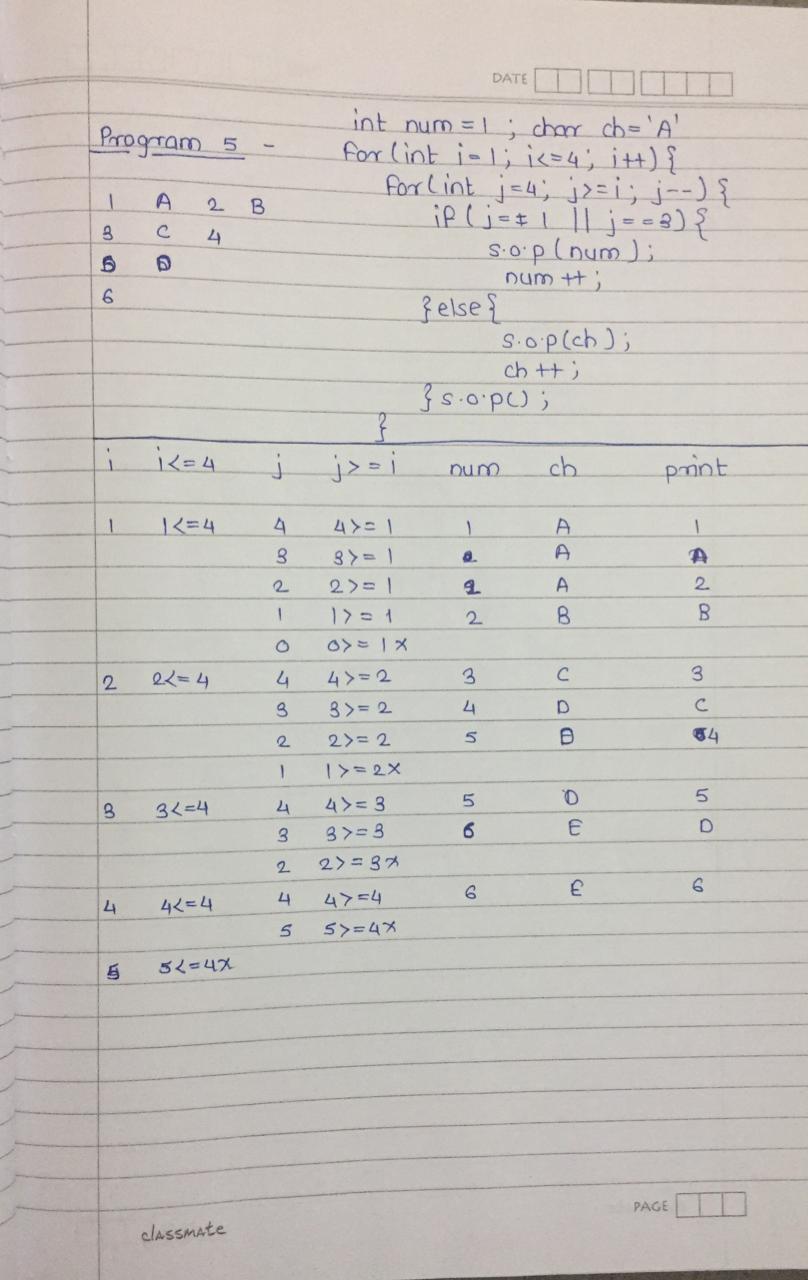 DATE
int num = 1 ; char ch= 'A'
Program 5 -
for(int i=1; i<=4; i++){
for(int j=4; j>=i; j--){
1 A 2 B
if(j== 1 || j==3){
3 C 4
s.o.p(num);
5 D
num ++;
6
}else{
s.o.p(ch);
ch ++;
}s.o.p();
}
i i<=4 j j>=i num ch print
1 1<=4 4 4>=1 1 A 1
3 3>=1 2 A A
2 2>=1 2 A 2
1 1>=1 2 B B
0 0>=1x
2 2<=4 4 4>=2 3 C 3
3 3>=2 4 D C
2 2>=2 5 D 4
1 1>=2x
3 3<=4 4 4>=3 5 D 5
3 3>=3 6 E D
2 2>=3x
4 4<=4 4 4>=4 6 E 6
5 5>=4x
5 5<=4x
PAGE
classmate